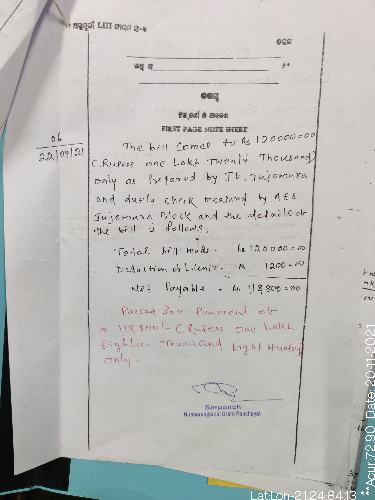 ଅନୁସୂଚୀ LIII ଫାରମ ନଂ-
FIRST PAGE NOTE SHEET
06
22/09/21
The bill comes to Rs 120000=00
(Rupees one Lakh Twenty Thousand)
only as Prepared by JE. Jujomura
and duely check measured by AEE
Jujomura Block and the details of
the bill is follows,
Total bill made - Rs 120000=00
Deduction of - Rs 1200=00
Net Payable - Rs 118,800=00
Passed for Payment of
Rs 118,800/- (Rupees one Lakh
Eighteen Thousand Eight Hundred
only.
Sarpanch
Gram Panchayat
Lat:Lon-21.248413
**Acur:72.90, Date: 20-11-2021